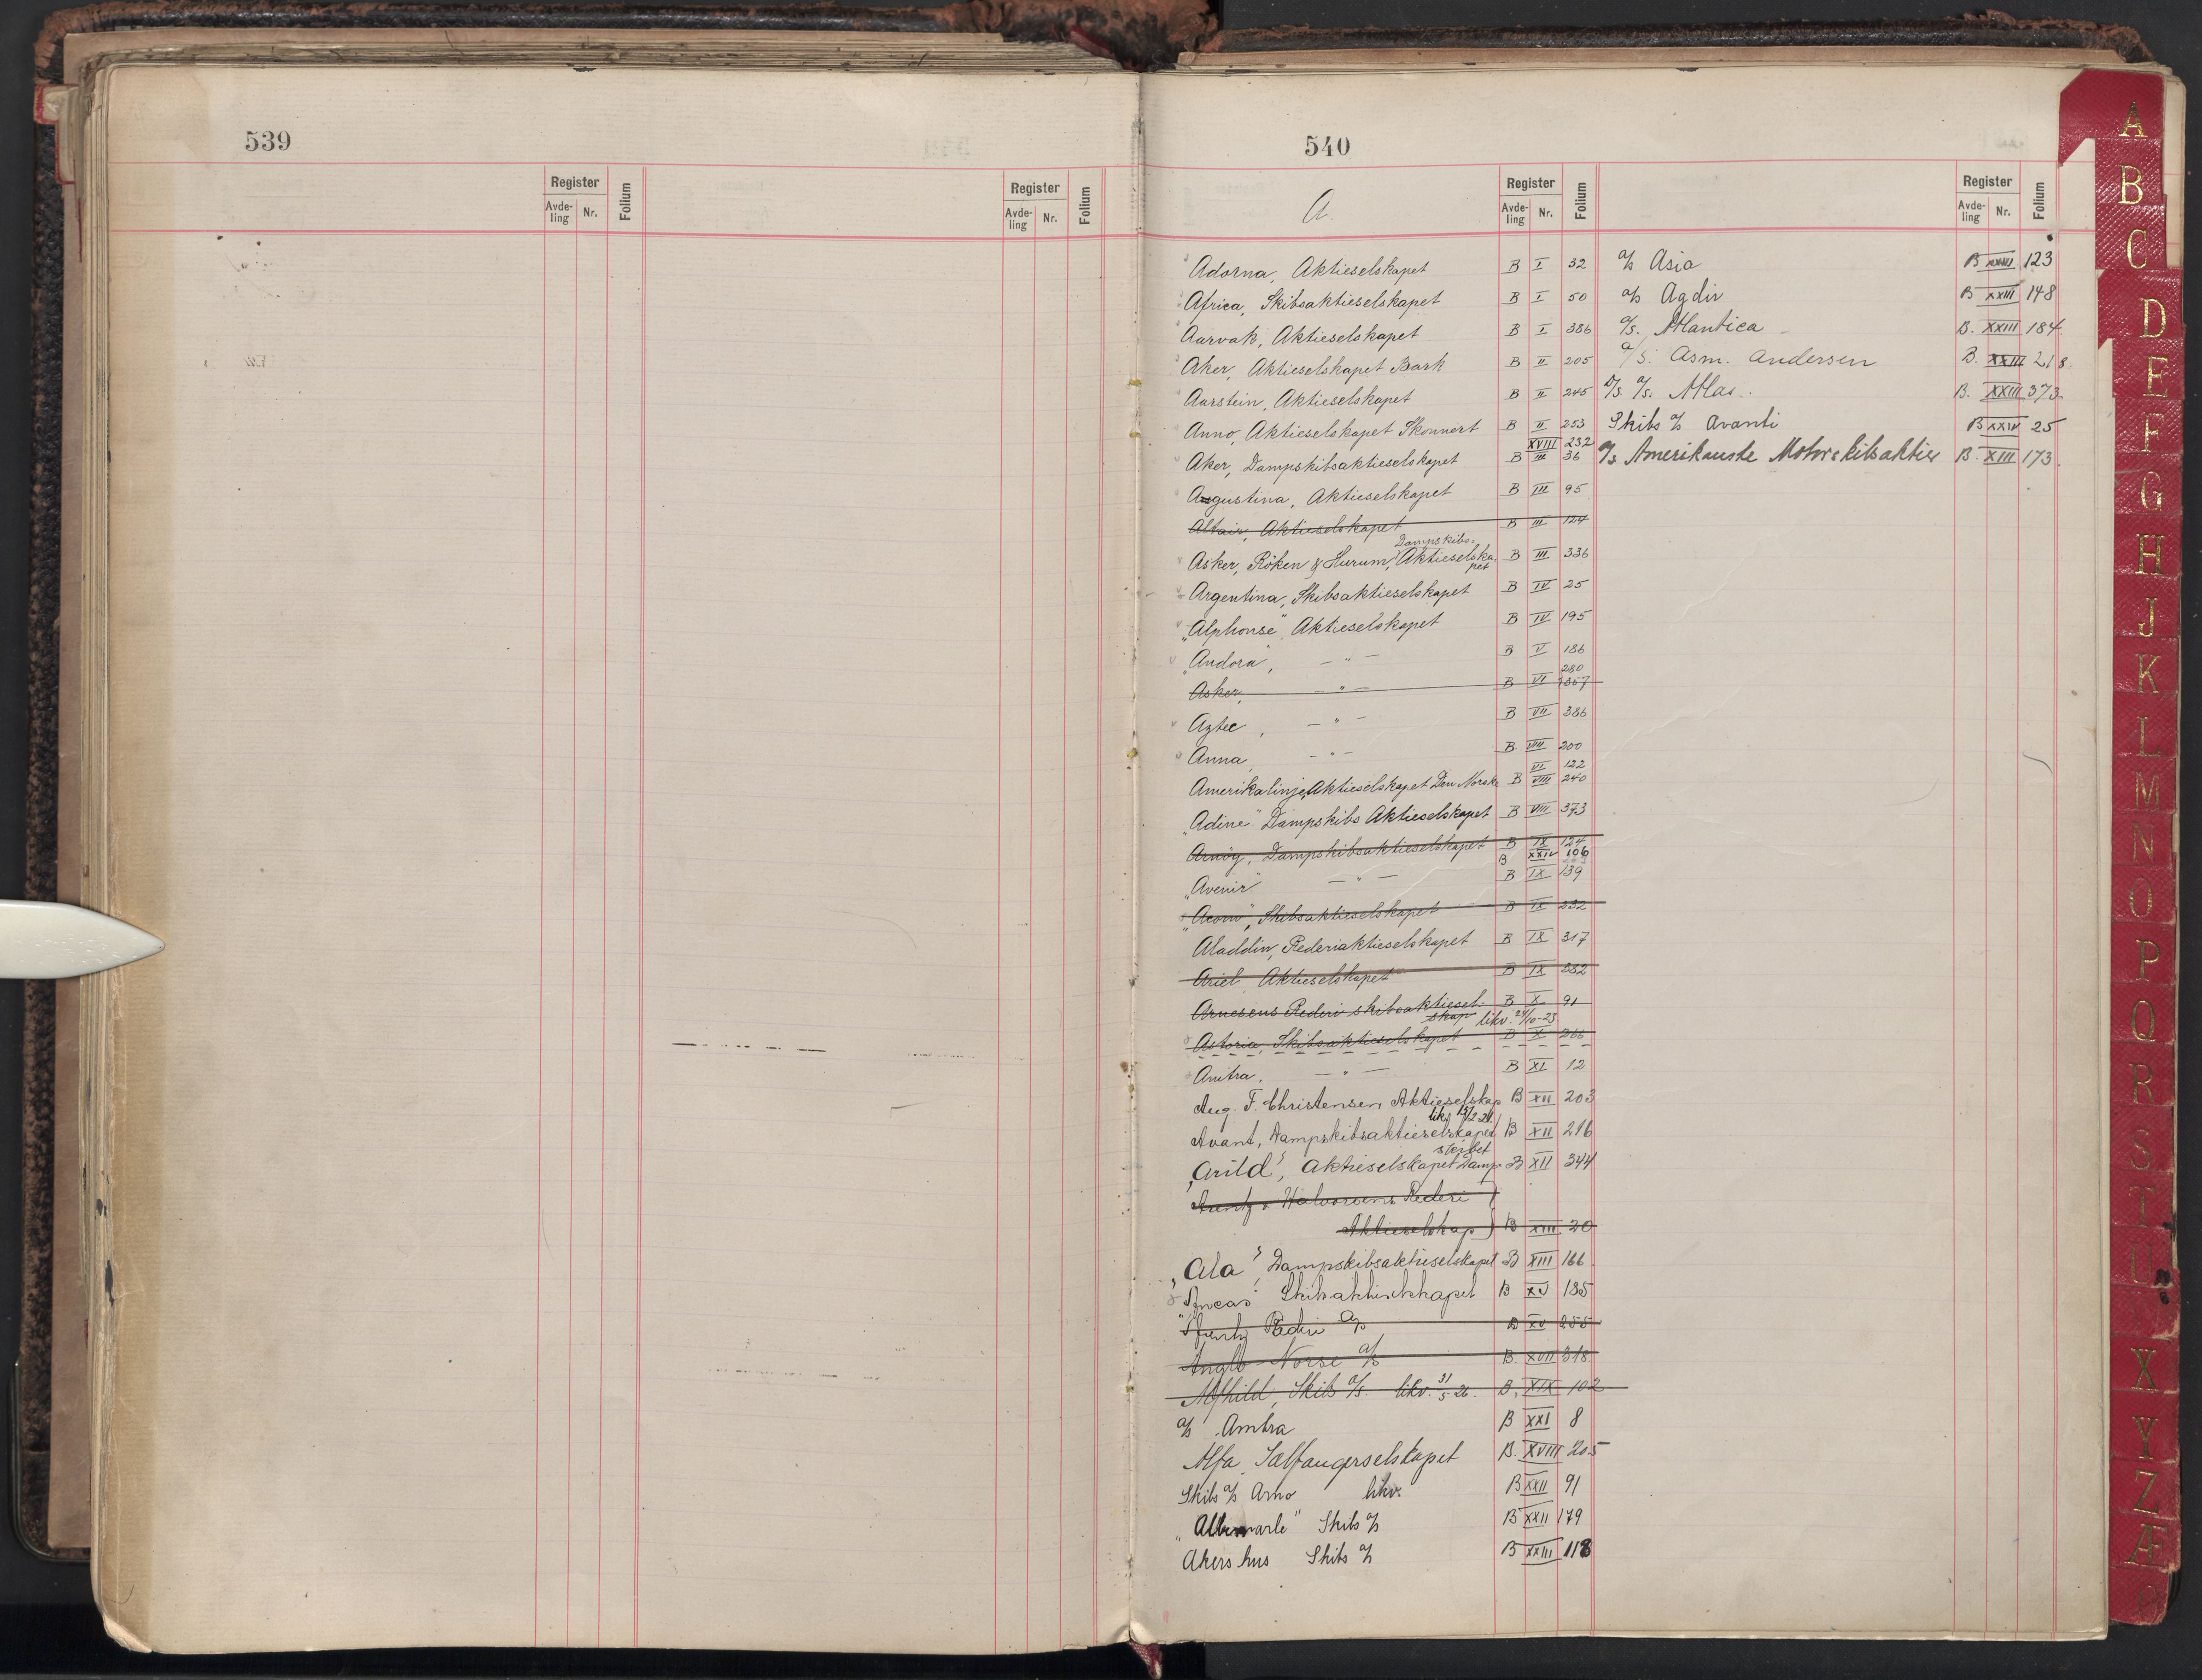 539
Register
Avde-
ling
Nr.
Folium
Register
Avde-
ling
Nr.
Folium
540
A.
Register
Avde-
ling
Nr.
Folium
Register
Avde-
ling
Nr.
Folium
Adorna, Aktieselskapet B I 32
Africa, Skibsaktieselskapet B I 50
Aarvak, Aktieselskapet B I 386
Aker, Aktieselskapet Bark B II 205
Aarstein, Aktieselskapet B II 245
Anno, Aktieselskapet Skonnert B II 253
XVIII 232
Aker, Dampskibsaktieselskapet B III 36
Augustina, Aktieselskapet B III 95
Altair, Aktieselskapet B III 124
Dampskibs-
Asker, Röken & Hurum, Aktieselska B III 336
pet
Argentina, Skibsaktieselskapet B IV 25
"Alphonse", Aktieselskapet B IV 195
"Andora", — " — B V 186
280
Asker, — " — B VI 357
Aztec, — " — B VII 386
Anna, — " — B VIII 200
VI 122
Amerikalinje, Aktieselskapet Den Norske B VIII 240
"Adine" Dampskibs Aktieselskapet B VIII 373
Arnöy, Dampskibsaktieselskapet B IX 124
B XXIV 106
"Avenir" — " — B IX 139
"Acorn", Skibsaktieselskapet B IX 232
Aladdin, Rederiaktieselskapet B IX 317
Ariel Aktieselskapet B IX 382
Arnesens Rederi skibsaktiesel- B X 91
skap likv. 24/10-23
Astoria, Skibsaktieselskapet B X 266
Anitra, — " — B XI 12
Aug. F. Christensen Aktieselskap B XII 203
likv. 15/2 21.
Avant, Dampskibsaktieselskapet B XII 216
skibet
"Arild", Aktieselskapet Damp- B XII 344
Arentz & Halvorsens Rederi
Aktieselskap B XIII 20
"Ala", Dampskibsaktieselskapet B XIII 166
"Æneas" Skibsaktieselskapet B XV 185
Arentz Rederi A/S B XV 255
Anglo-Norse A/S B. XVII 318
Alfhild, Skibs A/S. likv. 31/5-26. B. XIX 102
A/S Ambra B XXI 8
Alfa, Sælfangerselskapet B. XVIII 205
Skibs A/S Arno likv. B XXII 91
"Albemarle" Skibs A/S B XXII 179
Akershus Skibs A/S B XXIII 118
A/S Asia B XXIII 123
A/S Agdir B XXIII 148
A/S. Atlantica B. XXIII 184
A/S. Asm. Andersen B. XXIII 218
D/S. A/S. Atlas. B. XXIII 373.
Skibs A/S Avanti B XXIV 25
A/S Amerikanske Motorskibsaktier B. XIII 173.
A
B
C
D
E
F
G
H
J
K
L
M
N
O
P
Q
R
S
T
U
X
Y
Z
Æ